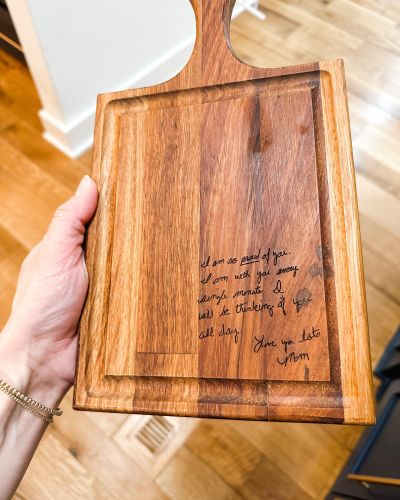 I am so proud of you.
I am with you every
single minute. I
will be thinking of you
all day.
Love you lots
Mom